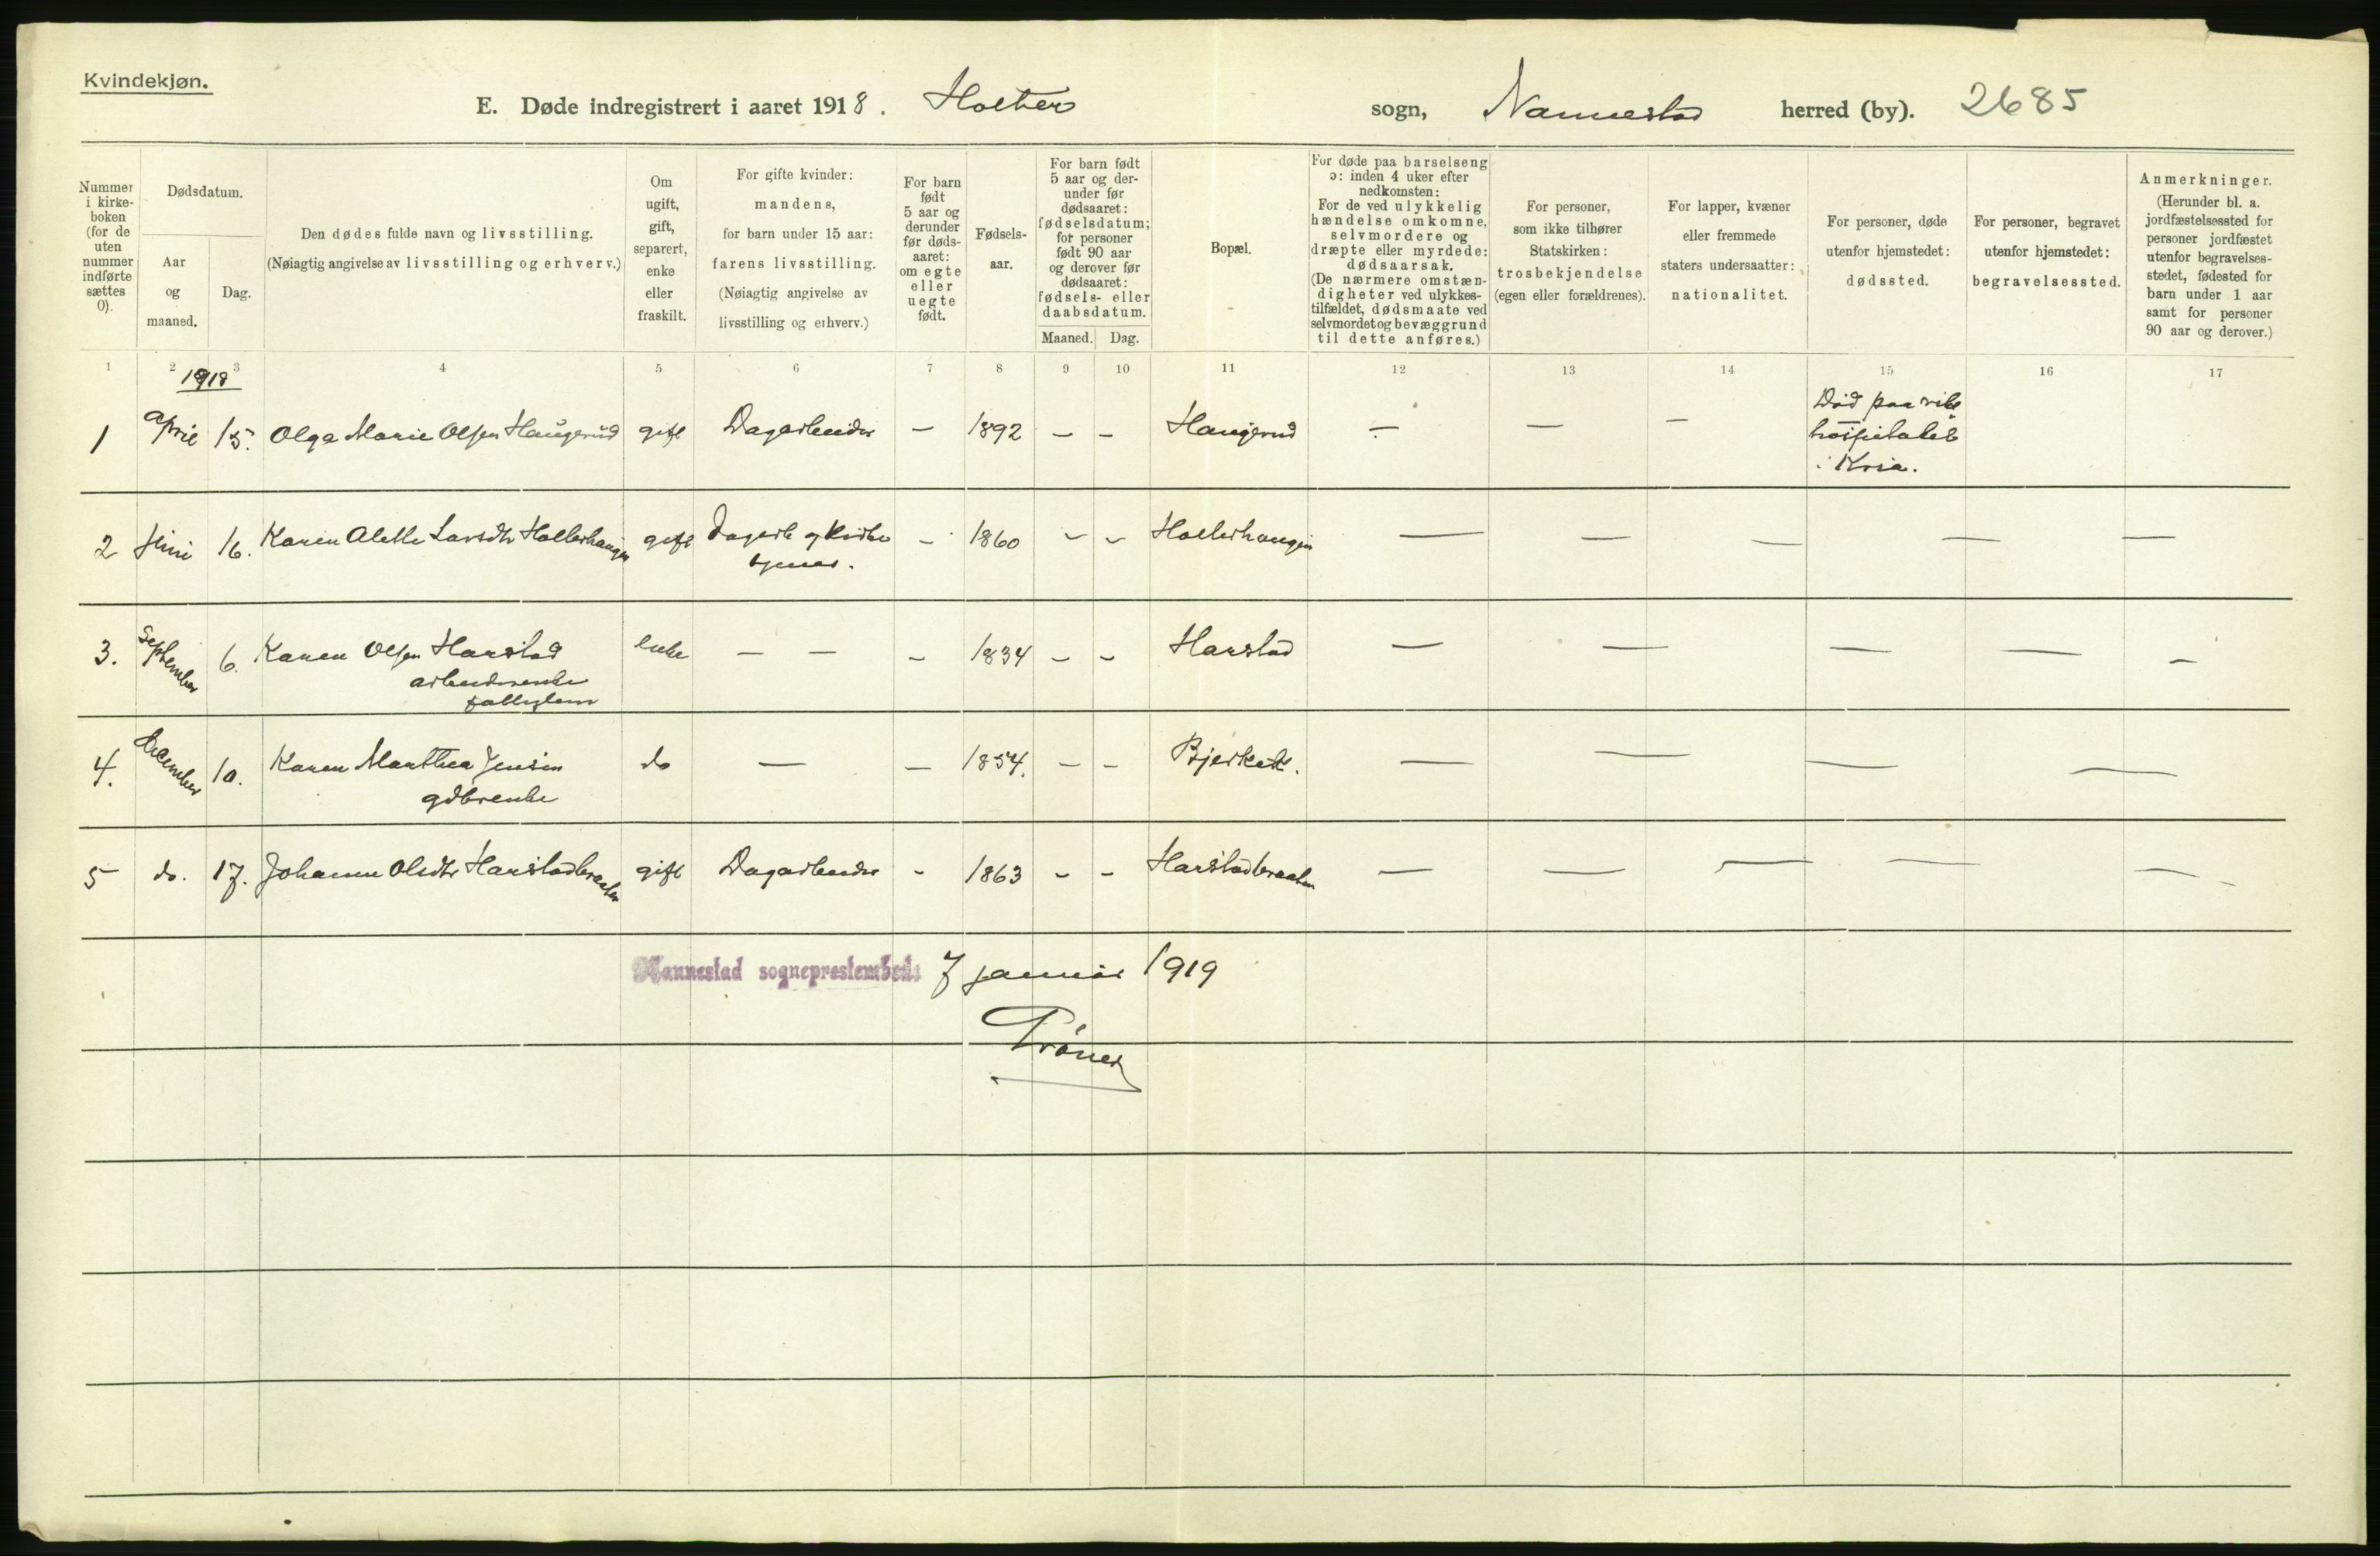 Kvindekjøn.
E. Døde indregistrert i aaret 1918. Holter sogn, Nannestad herred (by). 2685
Nummer i kirke- boken (for de uten nummer indførte sættes 0).
Dødsdatum.
Aar og maaned.
Dag.
Den dødes fulde navn og livsstilling.
(Nøiagtig angivelse av livsstilling og erhverv.)
Om ugift, gift, separert, enke eller fraskilt.
For gifte kvinder: mandens, for barn under 15 aar: farens livsstilling. (Nøiagtig angivelse av livsstilling og erhverv.)
For barn født 5 aar og derunder før døds- aaret: om egte eller uegte født.
Fødsels- aar.
For barn født 5 aar og der- under før dødsaaret: fødselsdatum; for personer født 90 aar og derover før dødsaaret: fødsels- eller daabsdatum.
Maaned. Dag.
Bopæl.
For døde paa barselseng ɔ: inden 4 uker efter nedkomsten: For de ved ulykkelig hændelse omkomne, selvmordere og dræpte eller myrdede: dødsaarsak. (De nærmere omstæn- digheter ved ulykkes- tilfældet, dødsmaate ved selvmordet og bevæggrund til dette anføres.)
For personer, som ikke tilhører Statskirken: trosbekjendelse (egen eller forældrenes).
For lapper, kvæner eller fremmede staters undersaatter: nationalitet.
For personer, døde utenfor hjemstedet: dødssted.
For personer, begravet utenfor hjemstedet: begravelsessted.
Anmerkninger. (Herunder bl. a. jordfæstelsessted for personer jordfæstet utenfor begravelses- stedet, fødested for barn under 1 aar samt for personer 90 aar og derover.)
1 2 3 4 5 6 7 8 9 10 11 12 13 14 15 16 17
1918
1 April 15. Olga Marie Olsen Haugerud gift Dagarbeider – 1892 – – Haugerud – – – Død paa riks hospitalet i Kria.
2 Juni 16. Karen Alette Larsdtr Holterhaugen gift Dagarb og kirke tjener. – 1860 – – Holterhaugen – – – – –
3. September 6. Karen Olsen Harstad enke – – – 1834 – – Harstad – – – – –
arbeiderenke
fattiglem
4. December 10. Karen Marthea Jensen do – – 1854. – – Bjerkek. – – – –
gdbrenke
5 do. 17. Johanne Olsdtr Harstadbraaten gift Dagarbeider – 1863 – – Harstadbraaten – – – – – –
Nannestad sogneprestembede 7 januar 1919